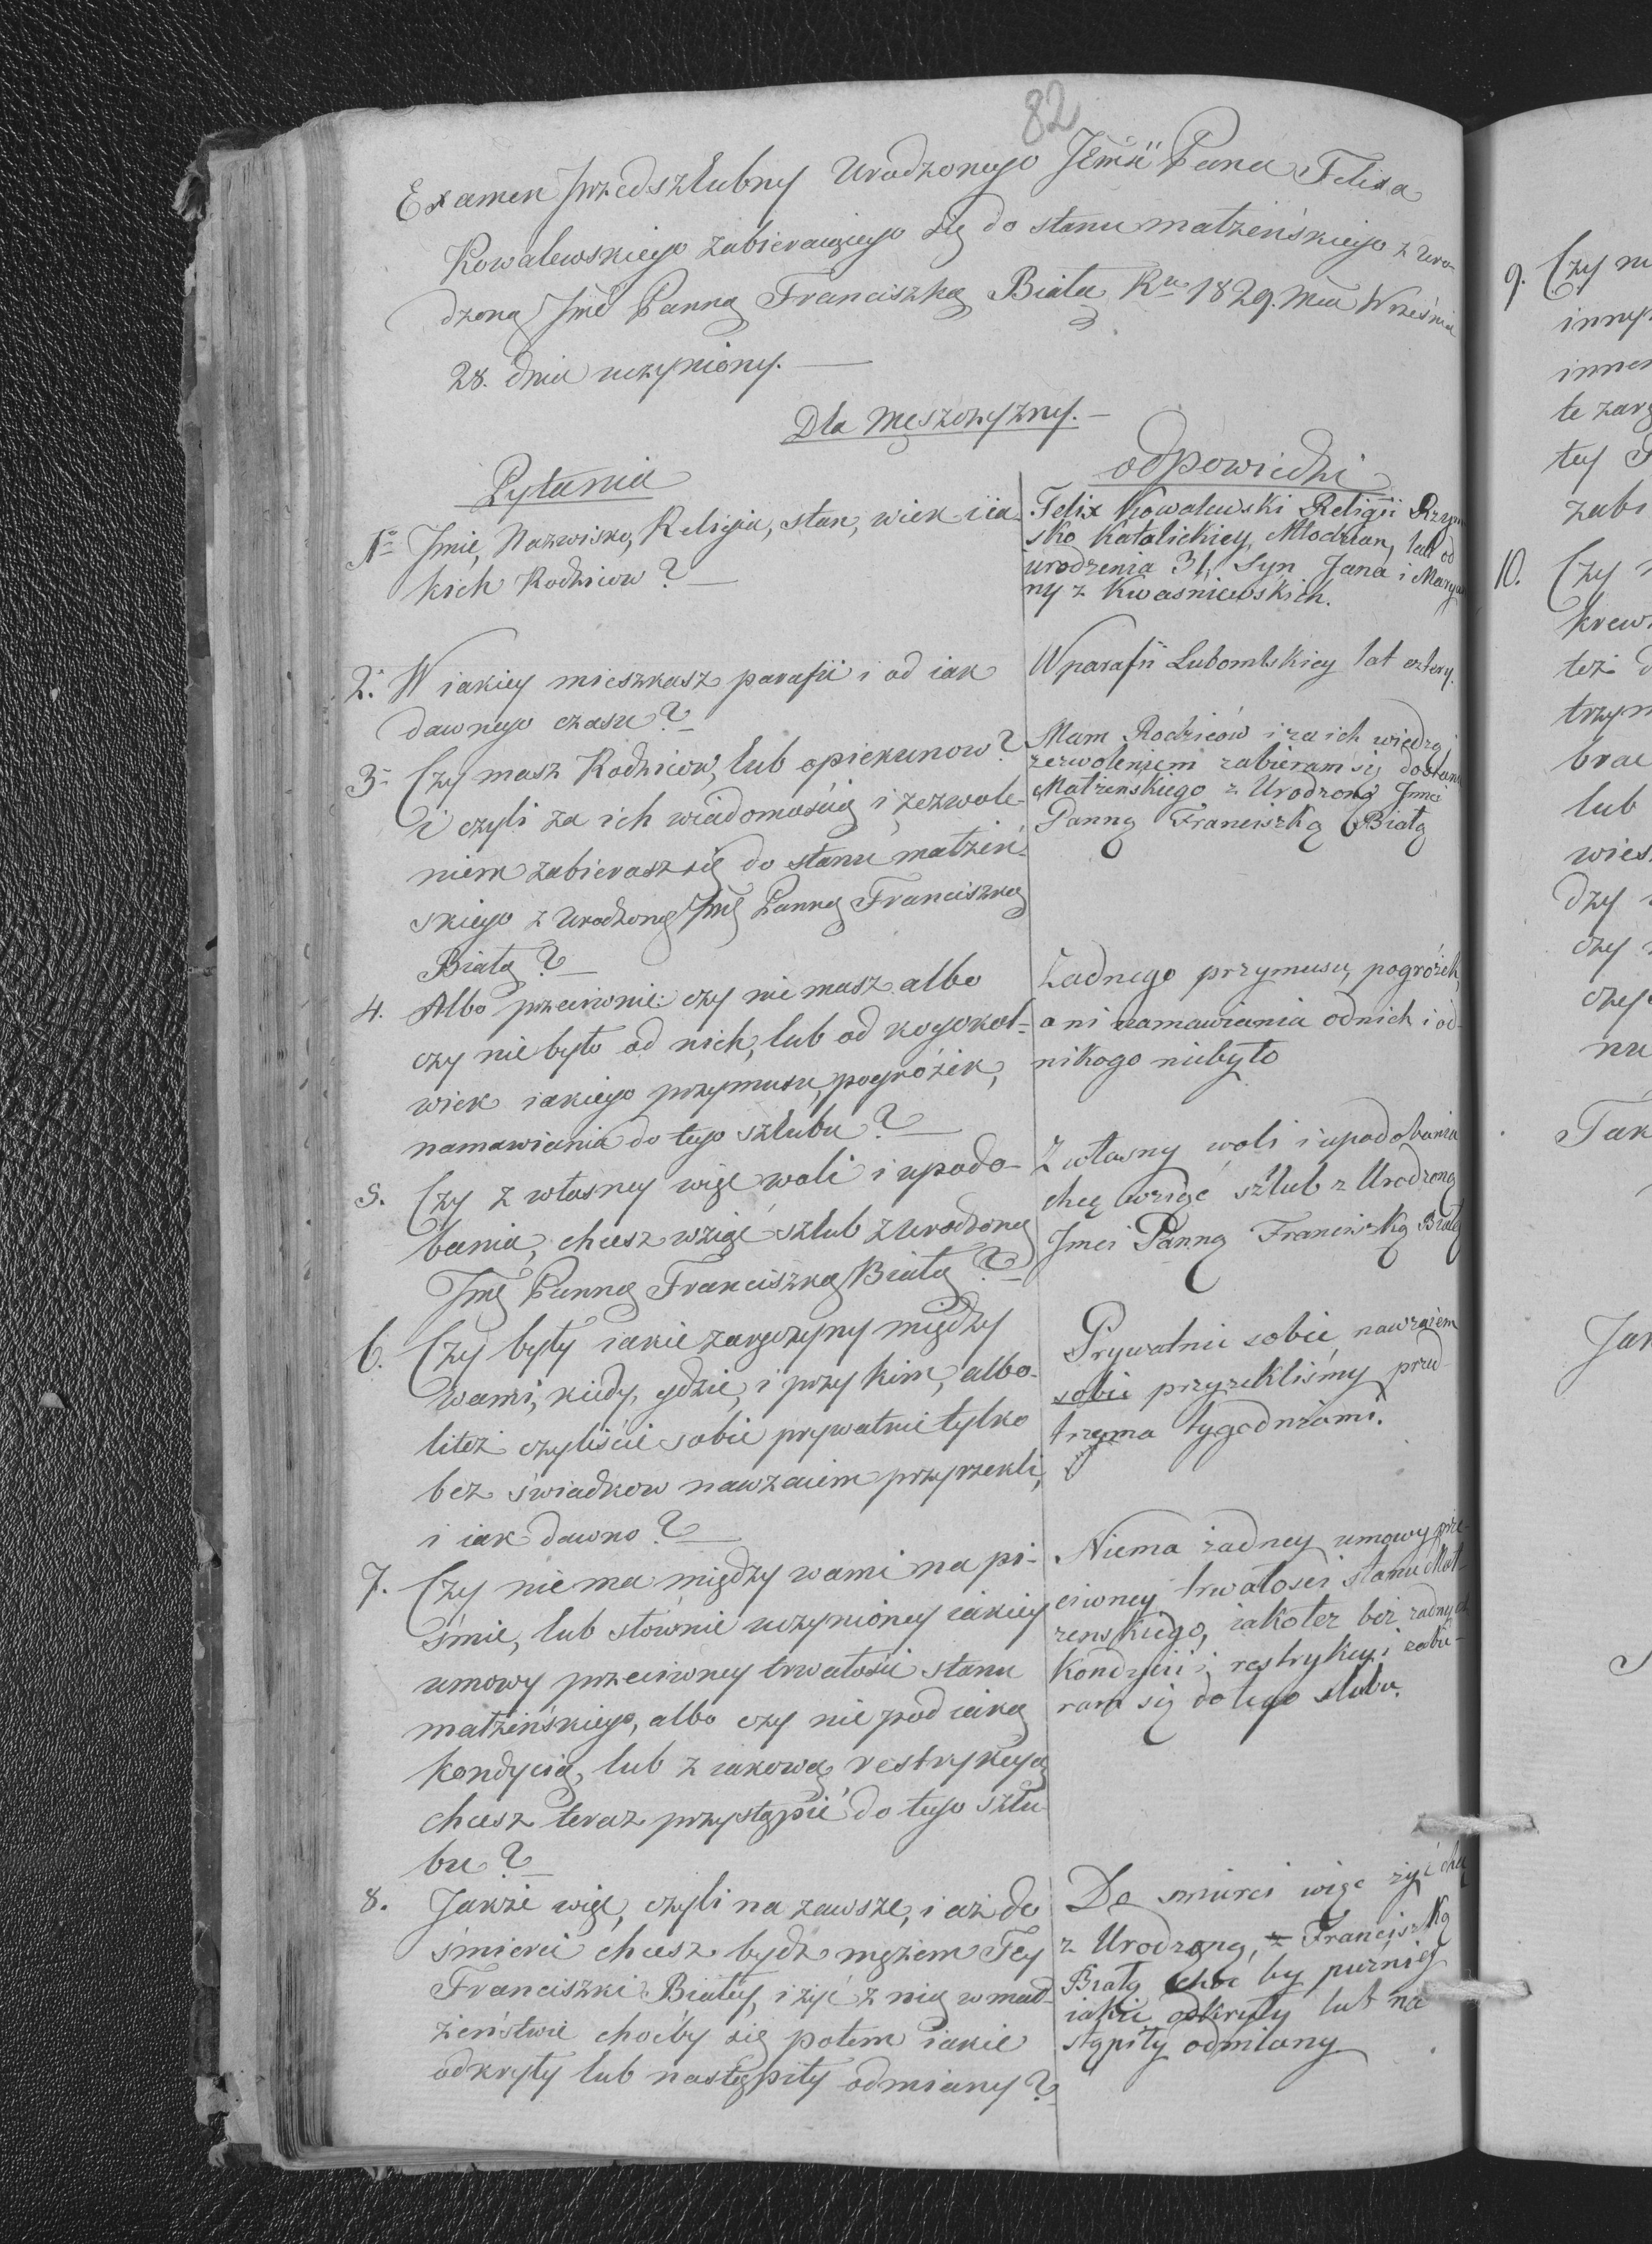 82
Examen przedszlubny Urodzonego JEmći Pana Felixa
Kowalewskiego zabieraiącego się do stanu małżeńskiego z Uro-
dzoną Jmć Panną Franciszką Białą Ru 1829. Mca Wrześnie
28. dnia uczyniony.
Dla Męszczyzny.
Pytania
1o Jmie, Nazwisko, Religia, stan, wiek i ia-
kich Rodziców?
2. W iakiey mieszkasz parafii i od iak
dawnego czasu?
3. Czy masz Rodziców, lub opiekunow?
i czyli za ich wiadomością i zezwole-
niem zabierasz się do stanu małżeń-
skiego z Urodzoną Jmć Panną Franciszką
Białą?
4. Albo przeciwnie: czy nie masz albo
czy nie było od nich, lub od kogokol-
wiek iakiego przymusu, pogróżek,
namawiania do tego szlubu?
5. Czy z własney więc woli i upodo-
bania, chcesz wziąć szlub z Urodzoną
Jmć Panną Franciszką Białą?
6. Czy były iakie zaręczyny między
wami, kiedy, gdzie, i przy kim, albo-
liteż czyliście sobie prywatnie tylko
bez świadkow nawzaiem przyrzekli,
i iak dawno?
7. Czy nie ma między wami na pi-
śmie, lub słownie uczynioney iakiey
umowy przeciwney trwałości stanu
małżeńskiego, albo czy nie pod iaką
kondycią, lub z iakową restrykcyą
chcesz teraz przystąpić do tego szlu-
bu?
8. Jakże więc, czyli na zawsze, i aż do
śmierci chcesz bydź mężem Tey
Franciszki Białey, i żyć z nią w mał-
żeństwie choćby się potem iakie
odkryły lub nastąpiły odmiany?
odpowiedzi
Felix Kowalewski Religii Rzym
sko Katolickiey, Młodzian, lat od
urodzenia 31, Syn Jana i Marya
ny z Kwaśniewskich.
W parafii Lubomlskiey lat cztery.
Mam Rodziców i za ich wiedzą i
zezwoleniem zabieram się do stanu
Małżenskiego z Urodzoną Jmci
Panną Franciszką Białą
Żadnego przymusu, pogróżek,
ani namawiania od nich i od
nikogo niebyło
Z własny woli i upodobania
chcę wziąć szlub z Urodzoną
Jmci Panną Franciszką Białą
Prywatnie sobie nawzaiem
sobie przyrzekliśmy przed
trzyma tygodniami.
Niema żadney umowy prze-
ciwney trwałości stanu Mał-
żenskiego, iakoteż bez żadnych
Kondycii i restrykcyi zabie-
ram się do tego slubu.
Do smierci więc żyć chcę
z Urodzoną, z Franciszką
Białą choć by puźniey
iakie odkryły lub na
stąpiły odmiany
9. Czy ni
inny
inne
te zarę
tey
zabi
10. Czy
krew
też d
trzym
brac
lub
wies
dzy
czy
czy
nu
Tak
Jak